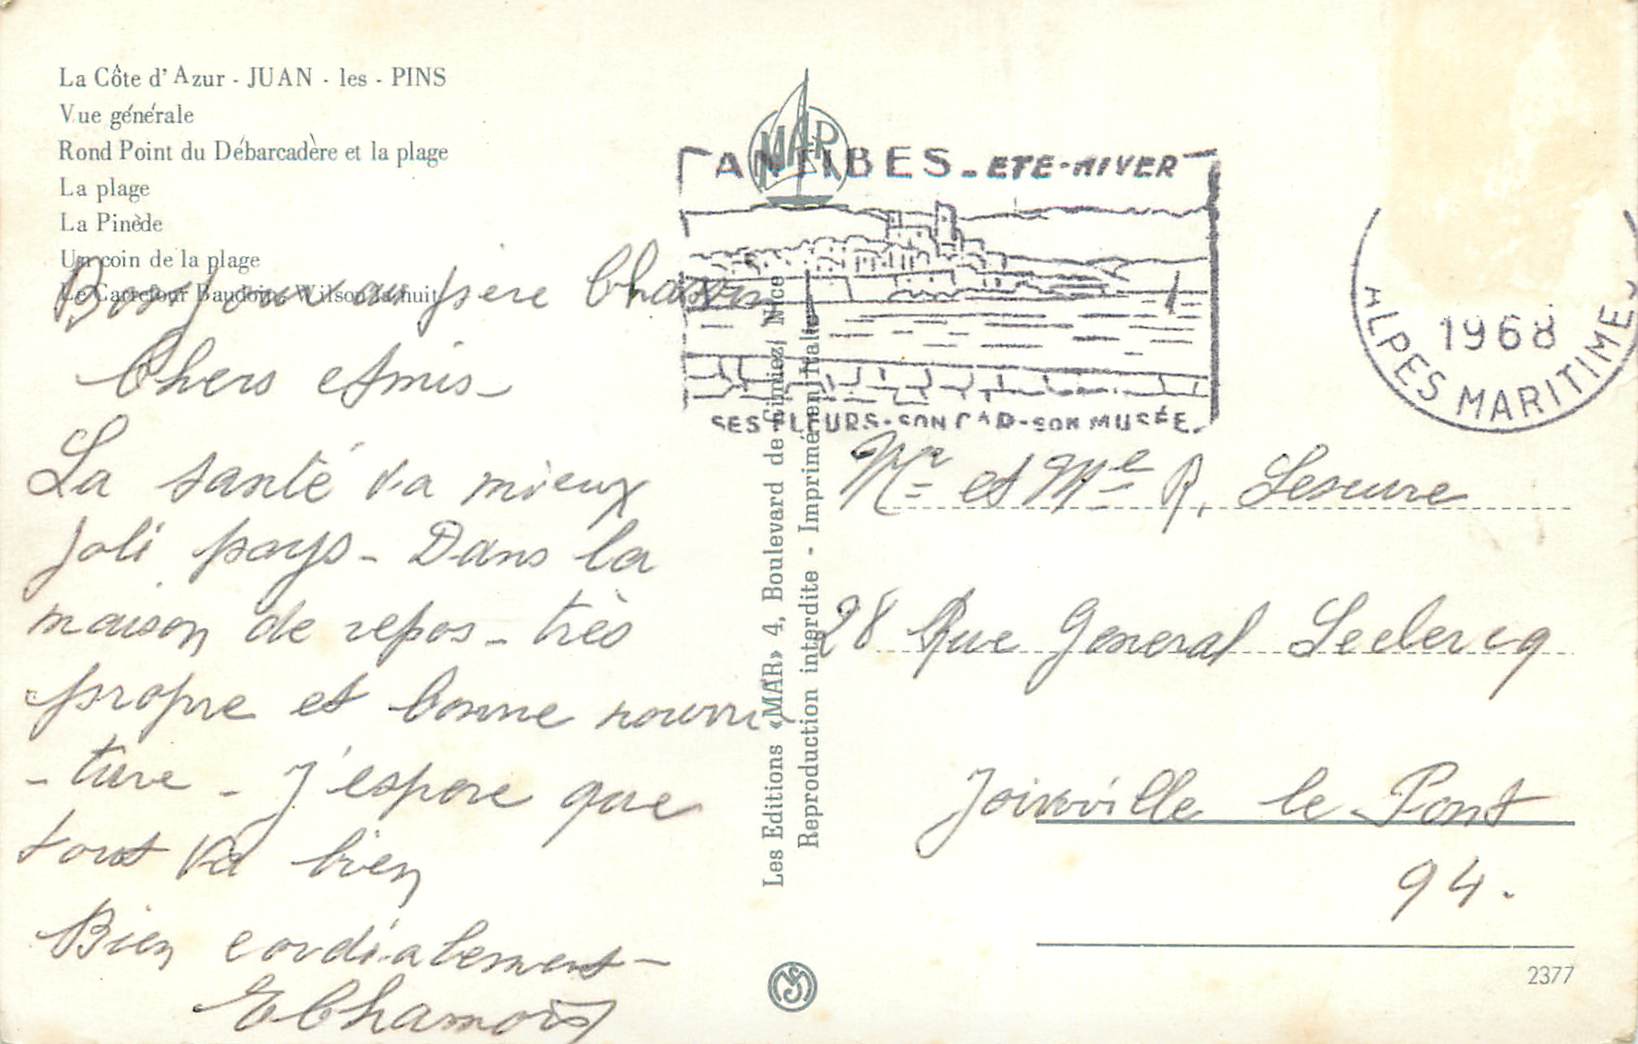 La Côte d'Azur - JUAN - les - PINS
Vue générale
Rond Point du Débarcadère et la plage
La plage
La Pinède
Un coin de la plage
Le Carrefour Baudoin, Wilson la nuit
Bonjour au père
Chers Amis -
La santé va mieux
Joli pays - Dans la
maison de repos - très
propre et bonne nourri
- ture - J'espère que
tout va bien
Bien cordialement -
E Chamois
MAR
Les Editions «MAR» 4, Boulevard de Cimiez, Nice
Reproduction interdite - Imprimé en Italie
ANTIBES - ETE - HIVER
SES FLEURS - SON CAP - SON MUSÉE
1968
ALPES MARITIMES
Mr et Me R. Lescure
28 Rue General Leclercq
Joinville le Pont
94.
2377